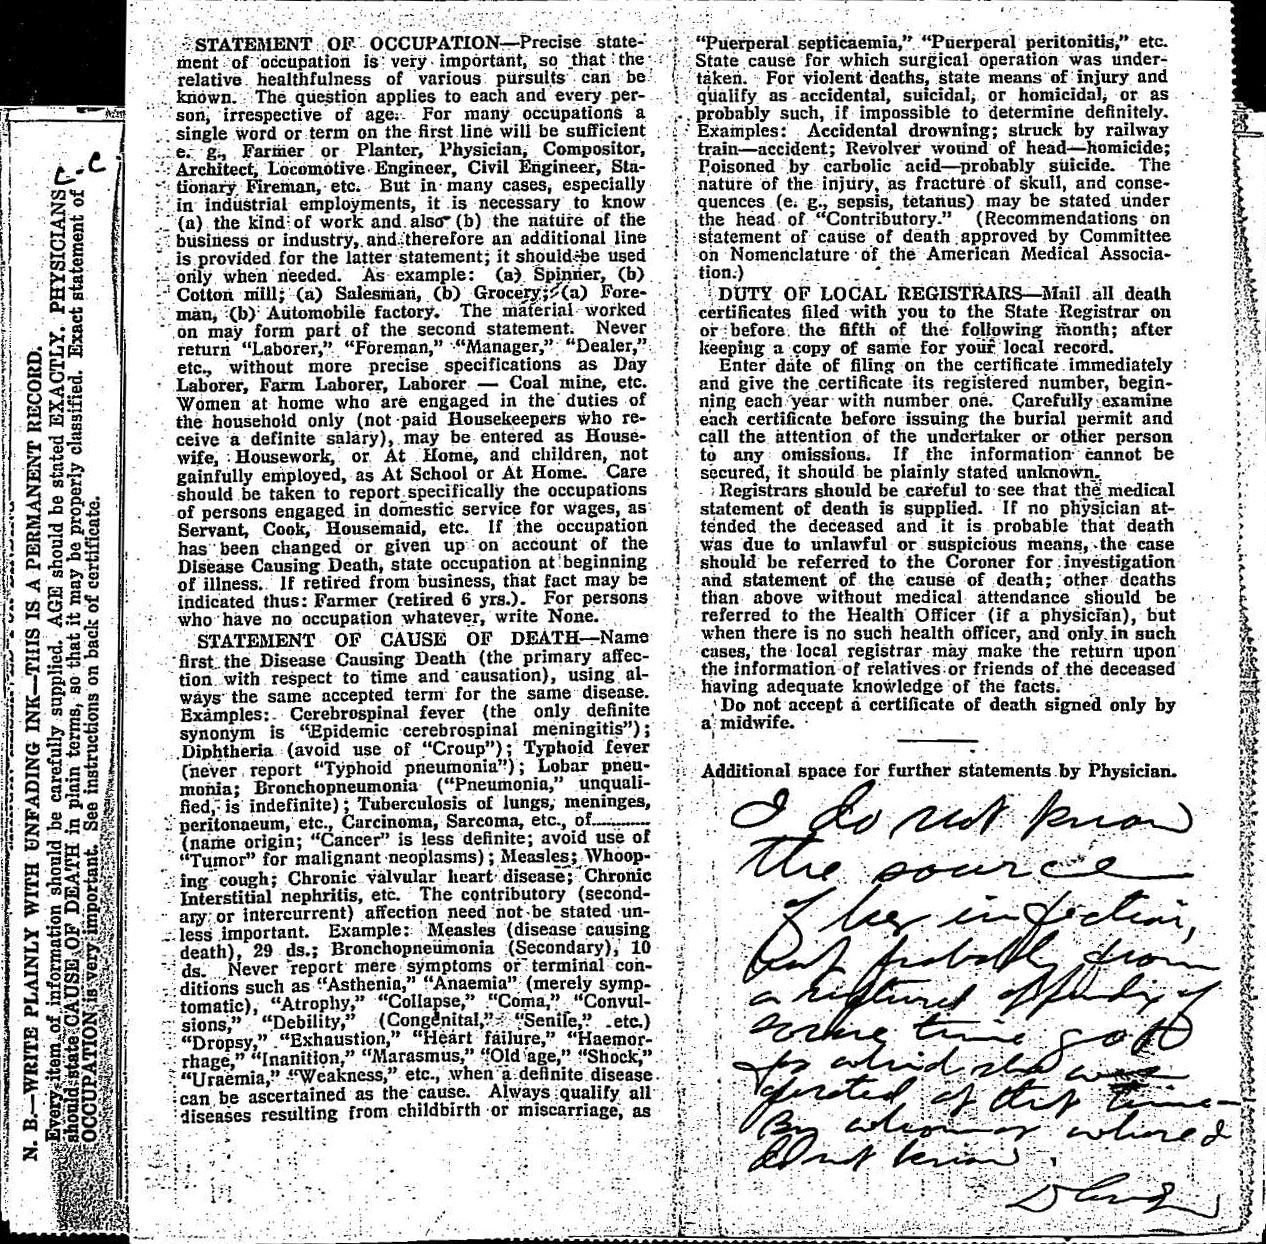 C-C
N. B.—WRITE PLAINLY WITH UNFADING INK—THIS IS A PERMANENT RECORD.
Every item of information should be carefully supplied. AGE should be stated EXACTLY. PHYSICIANS
should state CAUSE OF DEATH in plain terms, so that it may be properly classified. Exact statement of
OCCUPATION is very important. See instructions on back of certificate.
STATEMENT OF OCCUPATION—Precise state-
ment of occupation is very important, so that the
relative healthfulness of various pursuits can be
known. The question applies to each and every per-
son, irrespective of age. For many occupations a
single word or term on the first line will be sufficient
e. g., Farmer or Planter, Physician, Compositor,
Architect, Locomotive Engineer, Civil Engineer, Sta-
tionary Fireman, etc. But in many cases, especially
in industrial employments, it is necessary to know
(a) the kind of work and also (b) the nature of the
business or industry, and therefore an additional line
is provided for the latter statement; it should be used
only when needed. As example: (a) Spinner, (b)
Cotton mill; (a) Salesman, (b) Grocery; (a) Fore-
man, (b) Automobile factory. The material worked
on may form part of the second statement. Never
return "Laborer," "Foreman," "Manager," "Dealer,"
etc., without more precise specifications as Day
Laborer, Farm Laborer, Laborer — Coal mine, etc.
Women at home who are engaged in the duties of
the household only (not paid Housekeepers who re-
ceive a definite salary), may be entered as House-
wife, Housework, or At Home, and children, not
gainfully employed, as At School or At Home. Care
should be taken to report specifically the occupations
of persons engaged in domestic service for wages, as
Servant, Cook, Housemaid, etc. If the occupation
has been changed or given up on account of the
Disease Causing Death, state occupation at beginning
of illness. If retired from business, that fact may be
indicated thus: Farmer (retired 6 yrs.). For persons
who have no occupation whatever, write None.
STATEMENT OF CAUSE OF DEATH—Name
first the Disease Causing Death (the primary affec-
tion with respect to time and causation), using al-
ways the same accepted term for the same disease.
Examples: Cerebrospinal fever (the only definite
synonym is "Epidemic cerebrospinal meningitis");
Diphtheria (avoid use of "Croup"); Typhoid fever
(never report "Typhoid pneumonia"); Lobar pneu-
monia; Bronchopneumonia ("Pneumonia," unquali-
fied, is indefinite); Tuberculosis of lungs, meninges,
peritonaeum, etc., Carcinoma, Sarcoma, etc., of............
(name origin; "Cancer" is less definite; avoid use of
"Tumor" for malignant neoplasms); Measles; Whoop-
ing cough; Chronic valvular heart disease; Chronic
Interstitial nephritis, etc. The contributory (second-
ary or intercurrent) affection need not be stated un-
less important. Example: Measles (disease causing
death), 29 ds.; Bronchopneumonia (Secondary), 10
ds. Never report mere symptoms or terminal con-
ditions such as "Asthenia," "Anaemia" (merely symp-
tomatic), "Atrophy," "Collapse," "Coma," "Convul-
sions," "Debility," (Congenital," "Senile," etc.)
"Dropsy," "Exhaustion," "Heart failure," "Haemor-
rhage," "Inanition," "Marasmus," "Old age," "Shock,"
"Uraemia," "Weakness," etc., when a definite disease
can be ascertained as the cause. Always qualify all
diseases resulting from childbirth or miscarriage, as
"Puerperal septicaemia," "Puerperal peritonitis," etc.
State cause for which surgical operation was under-
taken. For violent deaths, state means of injury and
qualify as accidental, suicidal, or homicidal, or as
probably such, if impossible to determine definitely.
Examples: Accidental drowning; struck by railway
train—accident; Revolver wound of head—homicide;
Poisoned by carbolic acid—probably suicide. The
nature of the injury, as fracture of skull, and conse-
quences (e. g., sepsis, tetanus) may be stated under
the head of "Contributory." (Recommendations on
statement of cause of death approved by Committee
on Nomenclature of the American Medical Associa-
tion.)
DUTY OF LOCAL REGISTRARS—Mail all death
certificates filed with you to the State Registrar on
or before the fifth of the following month; after
keeping a copy of same for your local record.
Enter date of filing on the certificate immediately
and give the certificate its registered number, begin-
ning each year with number one. Carefully examine
each certificate before issuing the burial permit and
call the attention of the undertaker or other person
to any omissions. If the information cannot be
secured, it should be plainly stated unknown.
Registrars should be careful to see that the medical
statement of death is supplied. If no physician at-
tended the deceased and it is probable that death
was due to unlawful or suspicious means, the case
should be referred to the Coroner for investigation
and statement of the cause of death; other deaths
than above without medical attendance should be
referred to the Health Officer (if a physician), but
when there is no such health officer, and only in such
cases, the local registrar may make the return upon
the information of relatives or friends of the deceased
having adequate knowledge of the facts.
Do not accept a certificate of death signed only by
a midwife.
Additional space for further statements by Physician.
I do not know
the source
of her infection,
but probably from
a ruptured appendix of
some time ago
for which she was
operated at that time
By whom or where I
do not know.